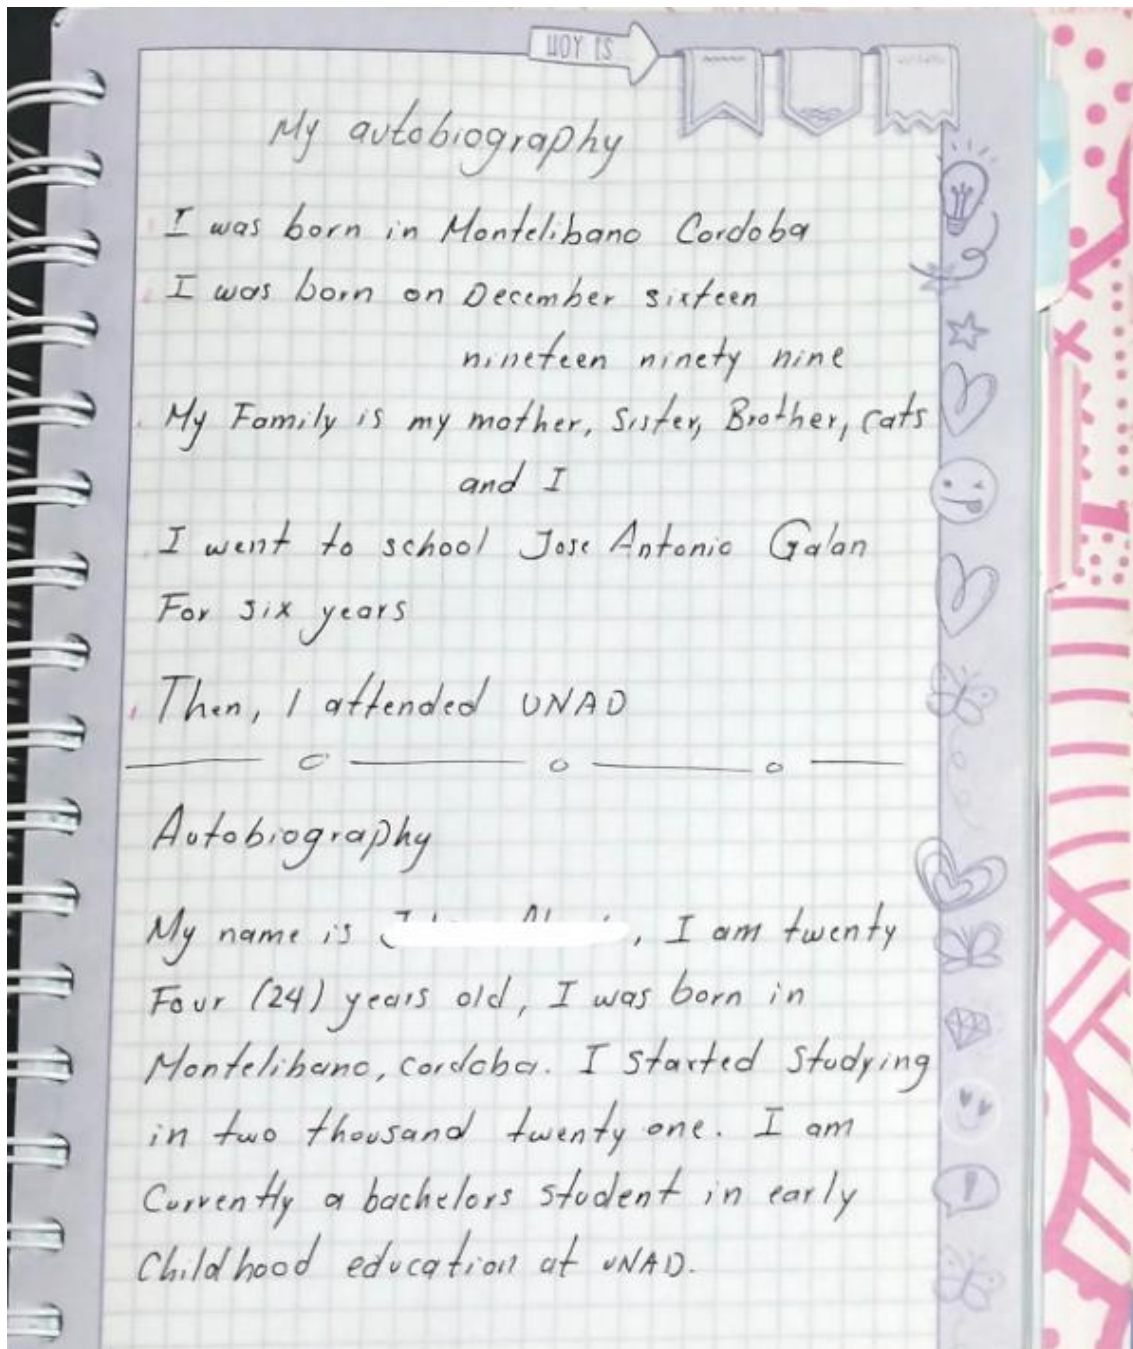 HOY ES
My autobiography
I was born in Montelibano Cordoba
I was born on December sixteen
nineteen ninety nine
My Family is my mother, Sister, Brother, cats
and I
I went to school Jose Antonio Galan
For six years
Then, I attended UNAD
Autobiography
My name is , I am twenty
Four (24) years old, I was born in
Montelibano, cordoba. I Started Studying
in two thousand twenty one. I am
Currently a bachelors student in early
Childhood education at UNAD.